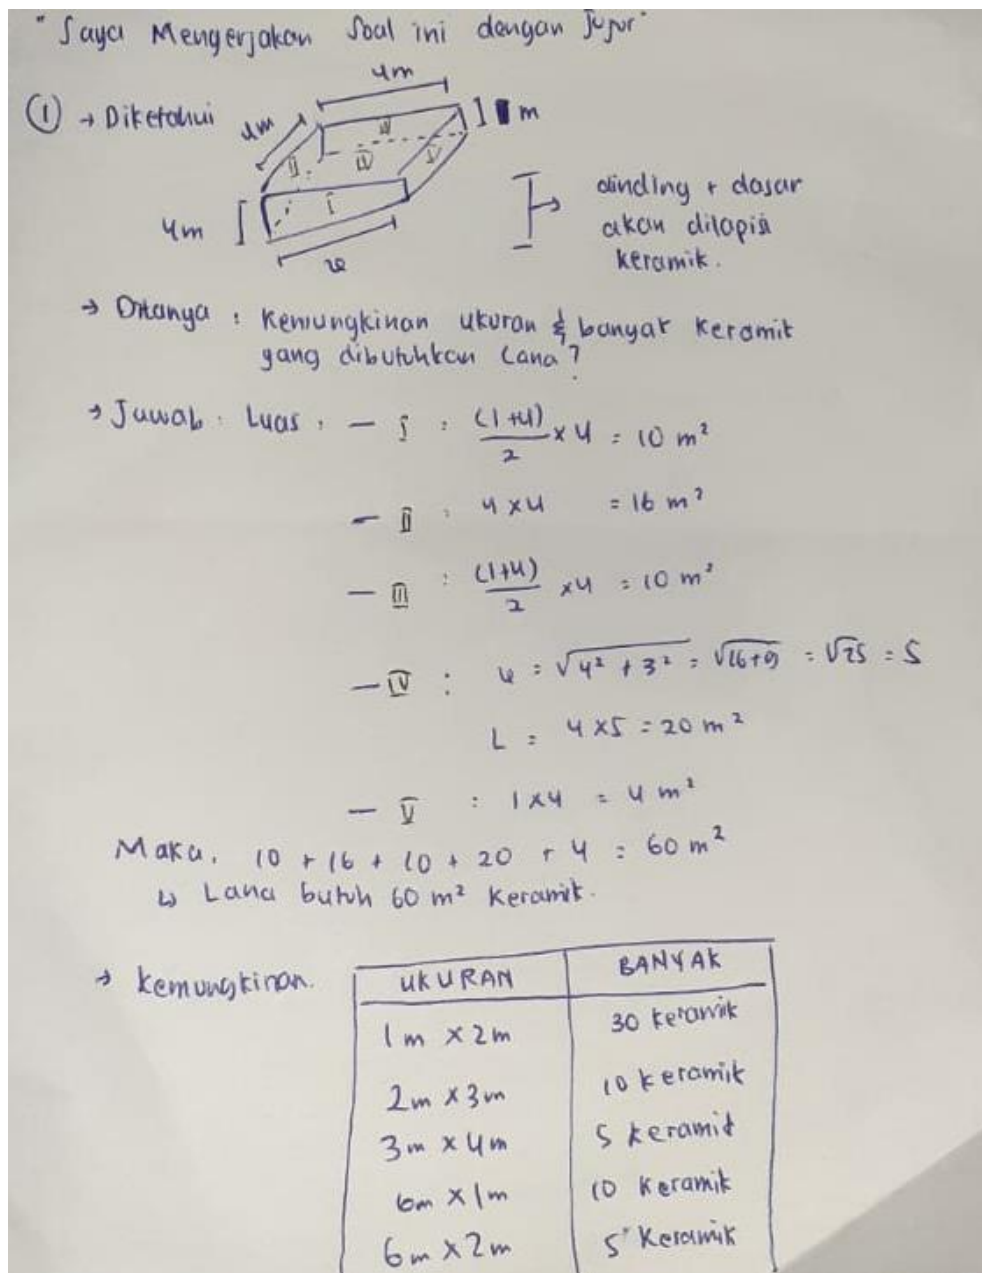 "Saya Mengerjakan Soal ini dengan Jujur"
① → Diketahui
4m
4m
1 m
4m
I
II
III
IV
V
dinding + dasar
akan dilapisi
keramik.
→ Ditanya : Kemungkinan ukuran & banyak keramik
yang dibutuhkan Lana?
→ Jawab : Luas : — I : (1+4)/2 × 4 = 10 m²
— II : 4 × 4 = 16 m²
— III : (1+4)/2 × 4 = 10 m²
— IV : = √4² + 3² = √16+9 = √25 = 5
L = 4 × 5 = 20 m²
— V : 1 × 4 = 4 m²
Maka, 10 + 16 + 10 + 20 + 4 = 60 m²
↳ Lana butuh 60 m² Keramik.
→ Kemungkinan.
UKURAN BANYAK
1m × 2m 30 keramik
2m × 3m 10 keramik
3m × 4m 5 keramik
6m × 1m 10 Keramik
6m × 2m 5 Keramik